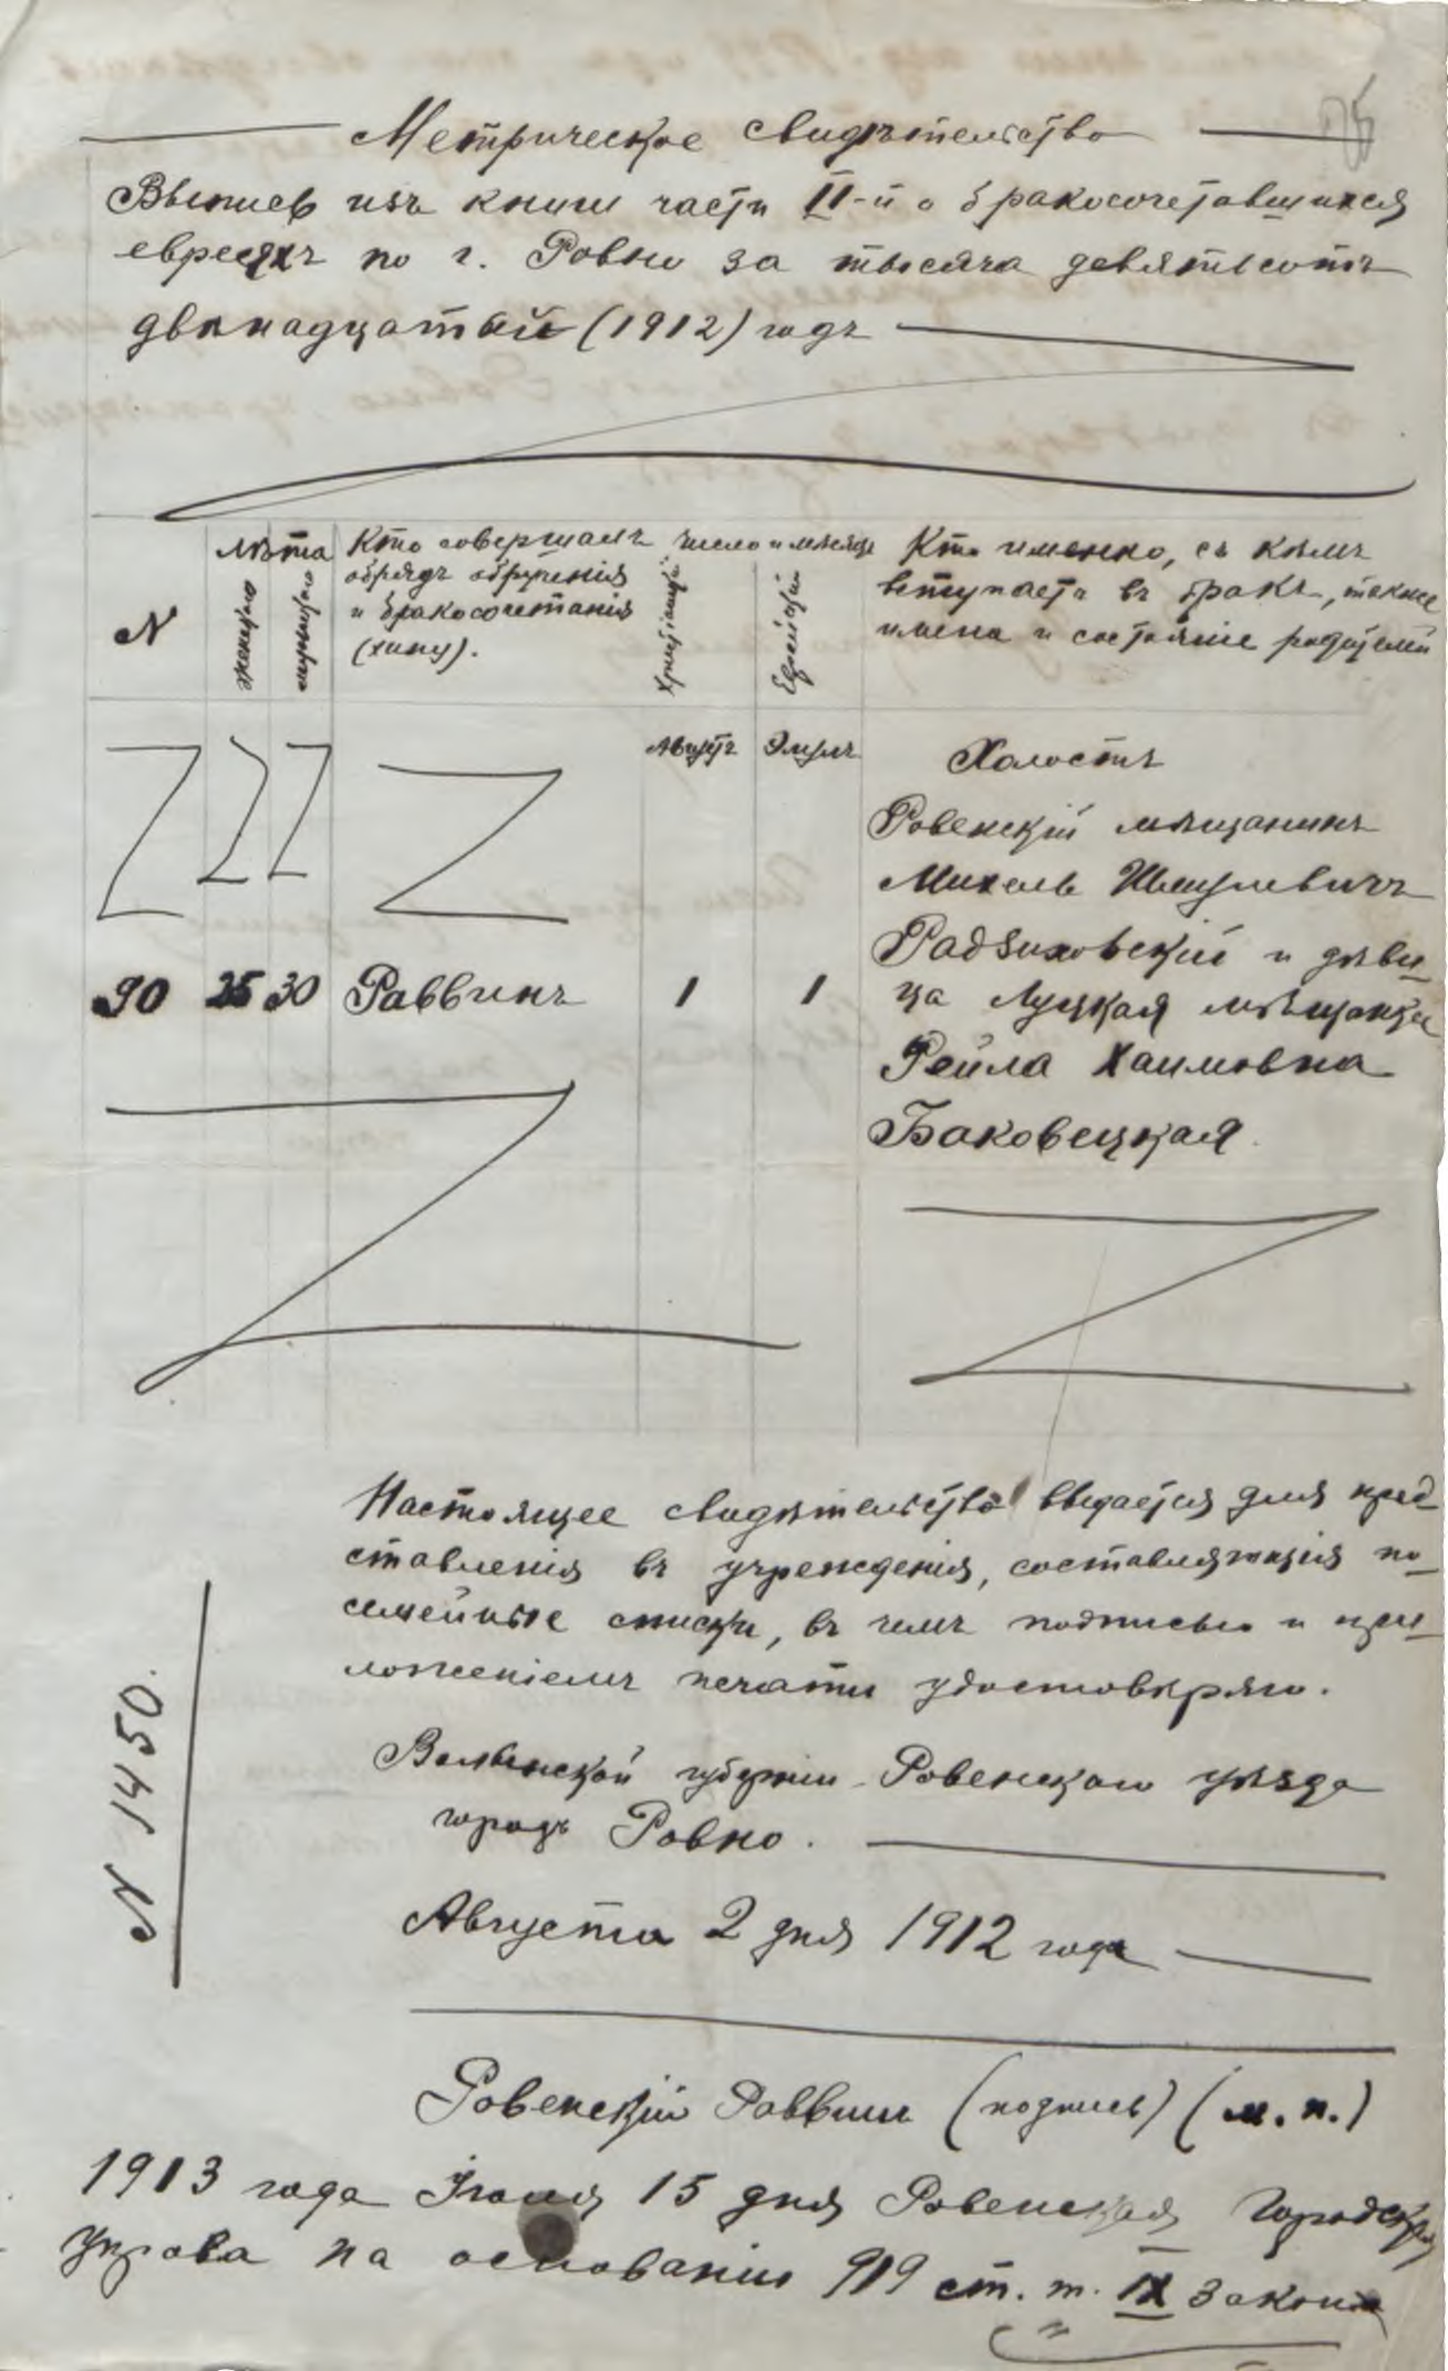 Метрическое свидѣтельство
Выпись изъ книги части II-й о бракосочетавшихся
евреяхъ по г. Ровно за тысяча девятьсотъ
двѣнадцатый (1912) годъ
25
N
Лѣта
женскаго
мужскаго
Кто совершалъ
обрядъ обрученія
и бракосочетанія
(хипу).
Число и мѣсяцъ
Христіанскій
Еврейскій
Кто именно, съ кѣмъ
вступаетъ въ бракъ, также
имена и состояніе родителей
Августъ Элулъ
Холостъ
Ровенскій мѣщанинъ
Михель Шмулевичъ
Радзиховскій и дѣви-
90 25 30 Раввинъ 1 1 ца Луцкая мѣщанка
Рейла Хаимовна
Баковецкая
Настоящее свидѣтельство выдается для пред
ставленія въ учрежденія, составляющія по-
семейные списки, въ чемъ подписью и при-
ложеніемъ печати удостовѣряю.
Волынской губерніи Ровенскаго уѣзда
городъ Ровно.
Августа 2 дня 1912 года
N 1450.
Ровенскій Раввинъ (подпись) (м. п.)
1913 года Іюля 15 дня Ровенская Городская
Управа на основаніи 919 ст. т. IX Закона